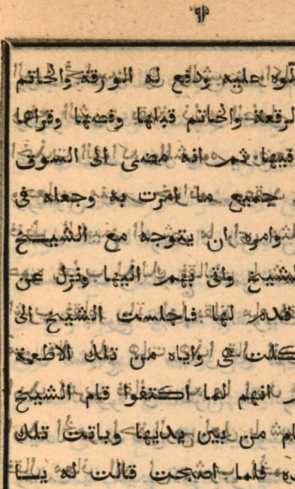 ٩٢
عليه ودفع له الورقة والخاتم
الرقعة والخاتم قبلها وفضها وقراها
فيها ثم انه مضى الى السوق
جميع ما امرت به وجعله فى
وامره ان يتوجه مع الشيخ
الشيخ واتى بهم اليها ونزل عن
قدم لها فاجلست الشيخ الى
اكلت هى واياه من تلك الاطعمة
انهم لما اكتفوا قام الشيخ
من بين يديها وباتت تلك
فلما اصبحت قالت له يا